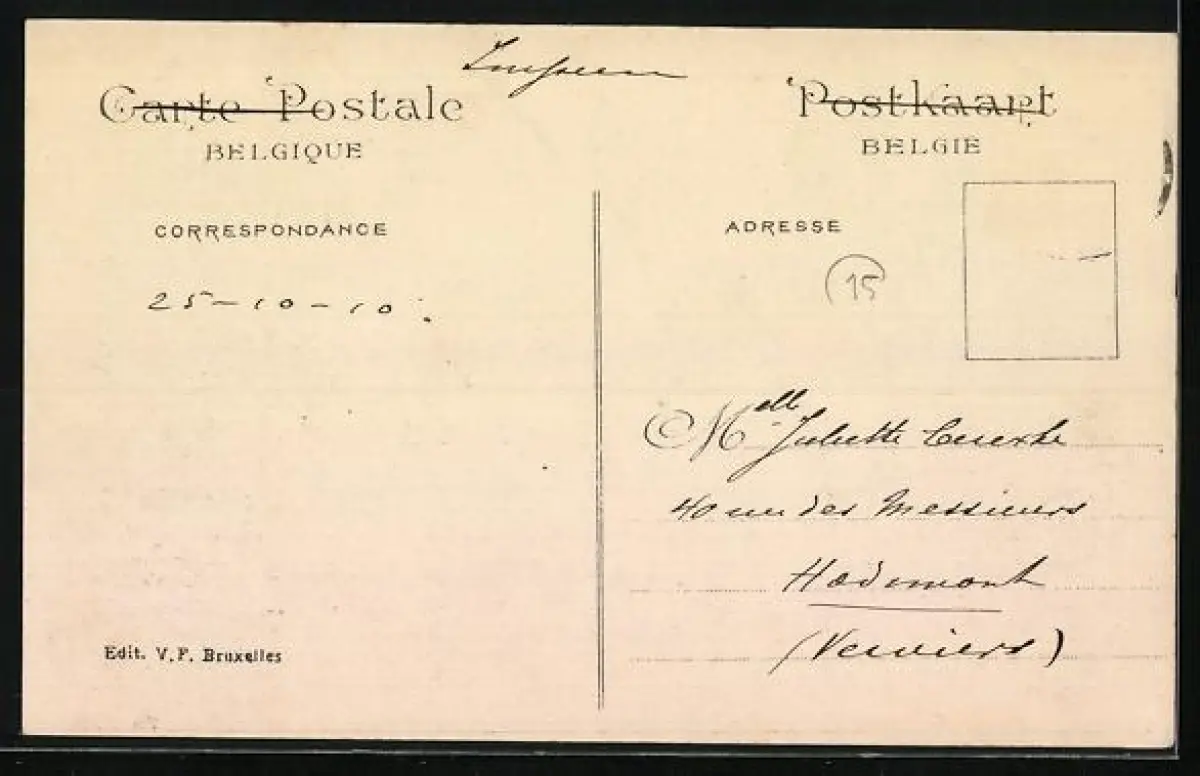 Carte Postale
BELGIQUE
Postkaart
BELGIË
CORRESPONDANCE
25-10-10.
ADRESSE
15
Melle Juliette
40 rue des Messieurs
Hodimont
(Verviers)
Edit. V.F. Bruxelles